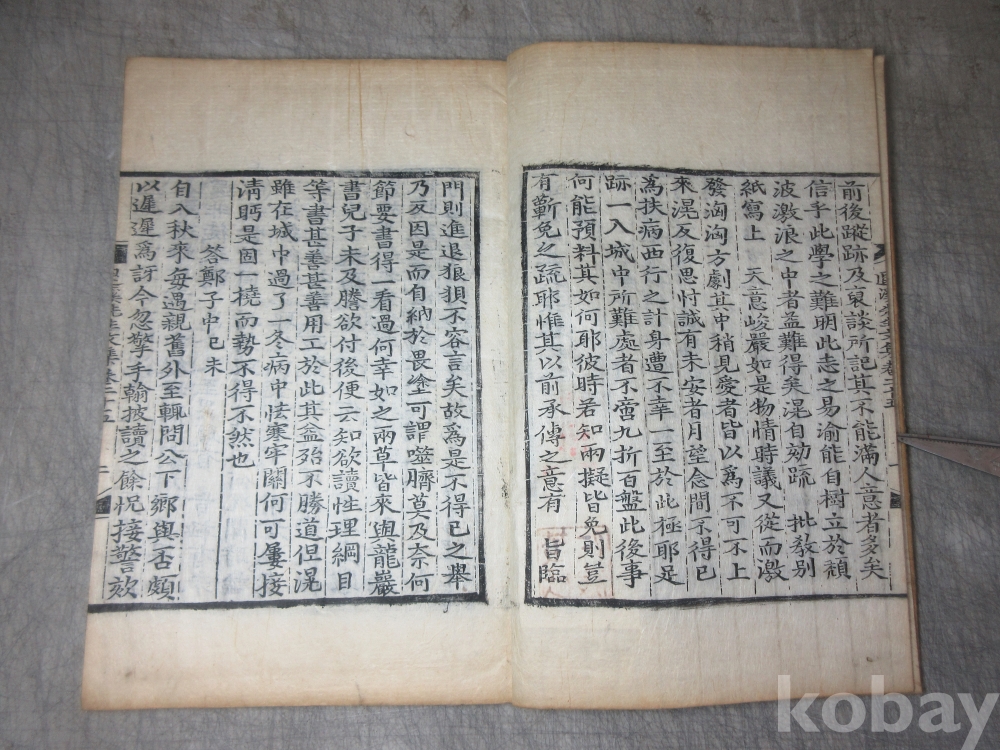 前後蹤跡及哀談所記其不能滿人意者多矣
信乎此學之難明此志之易渝能自樹立於頹
波激浪之中者益難得矣滉自劾疏 批教別
紙寫上 天意峻嚴如是物情時議又從而激
發洶洶方劇其中稍見愛者皆以為不可不上
來滉反復思忖誠有未安者月望念間不得已
為扶病西行之計身遭不幸一至於此極耶足
跡一入城中所難處者不啻九折百盤此後事
何能預料其如何耶彼時若知兩擬皆免則豈
有蘄免之疏耶惟其以前承傳之意有 旨臨
退溪先生文集卷二十五
門則進退狼狽不容言矣故爲是不得已之舉
乃反因是而自納於畏塗可謂噬臍莫及奈何
節要書得一看過何幸如之兩草皆來與龍巖
書兒子未及謄欲付後便云知欲讀性理綱目
等書甚善甚善用工於此其益殆不勝道但滉
雖在城中過了一冬病中怯寒牢關何可屢接
淸眄是固一橈而勢不得不然也
答鄭子中己未
自入秋來每遇親舊外至輒問公下鄉與否頗
以遲遲爲訝今忽擎手翰披讀之餘怳接警欬
退溪先生文集卷二十五
kobay